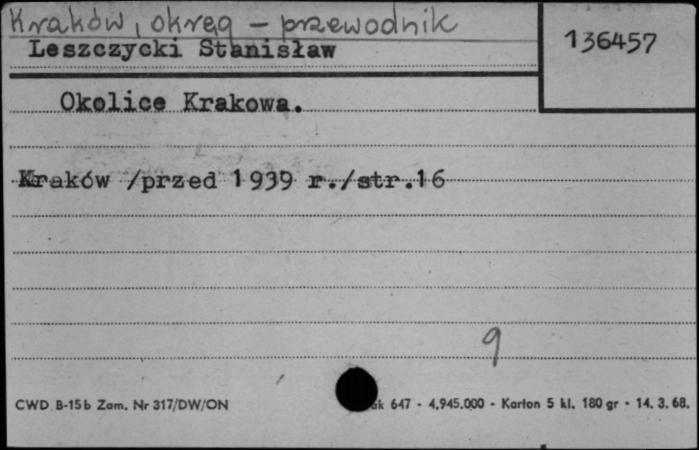 Kraków, okręg - przewodnik
136457
Leszczycki Stanisław
Okolice Krakowa.
Kraków /przed 1939 r./str.16
9
CWD B-15b Zam. Nr 317/DW/ON
647 - 4,945.000 - Karton 5 kl. 180 gr - 14. 3. 68.